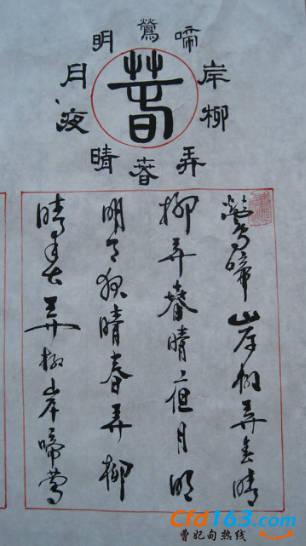 鶯啼岸柳弄春晴夜月明
春
鶯啼岸柳弄春晴
柳弄春晴夜月明
明月夜晴春弄柳
晴春弄柳岸啼鶯
Cfd163.com
曹妃甸热线